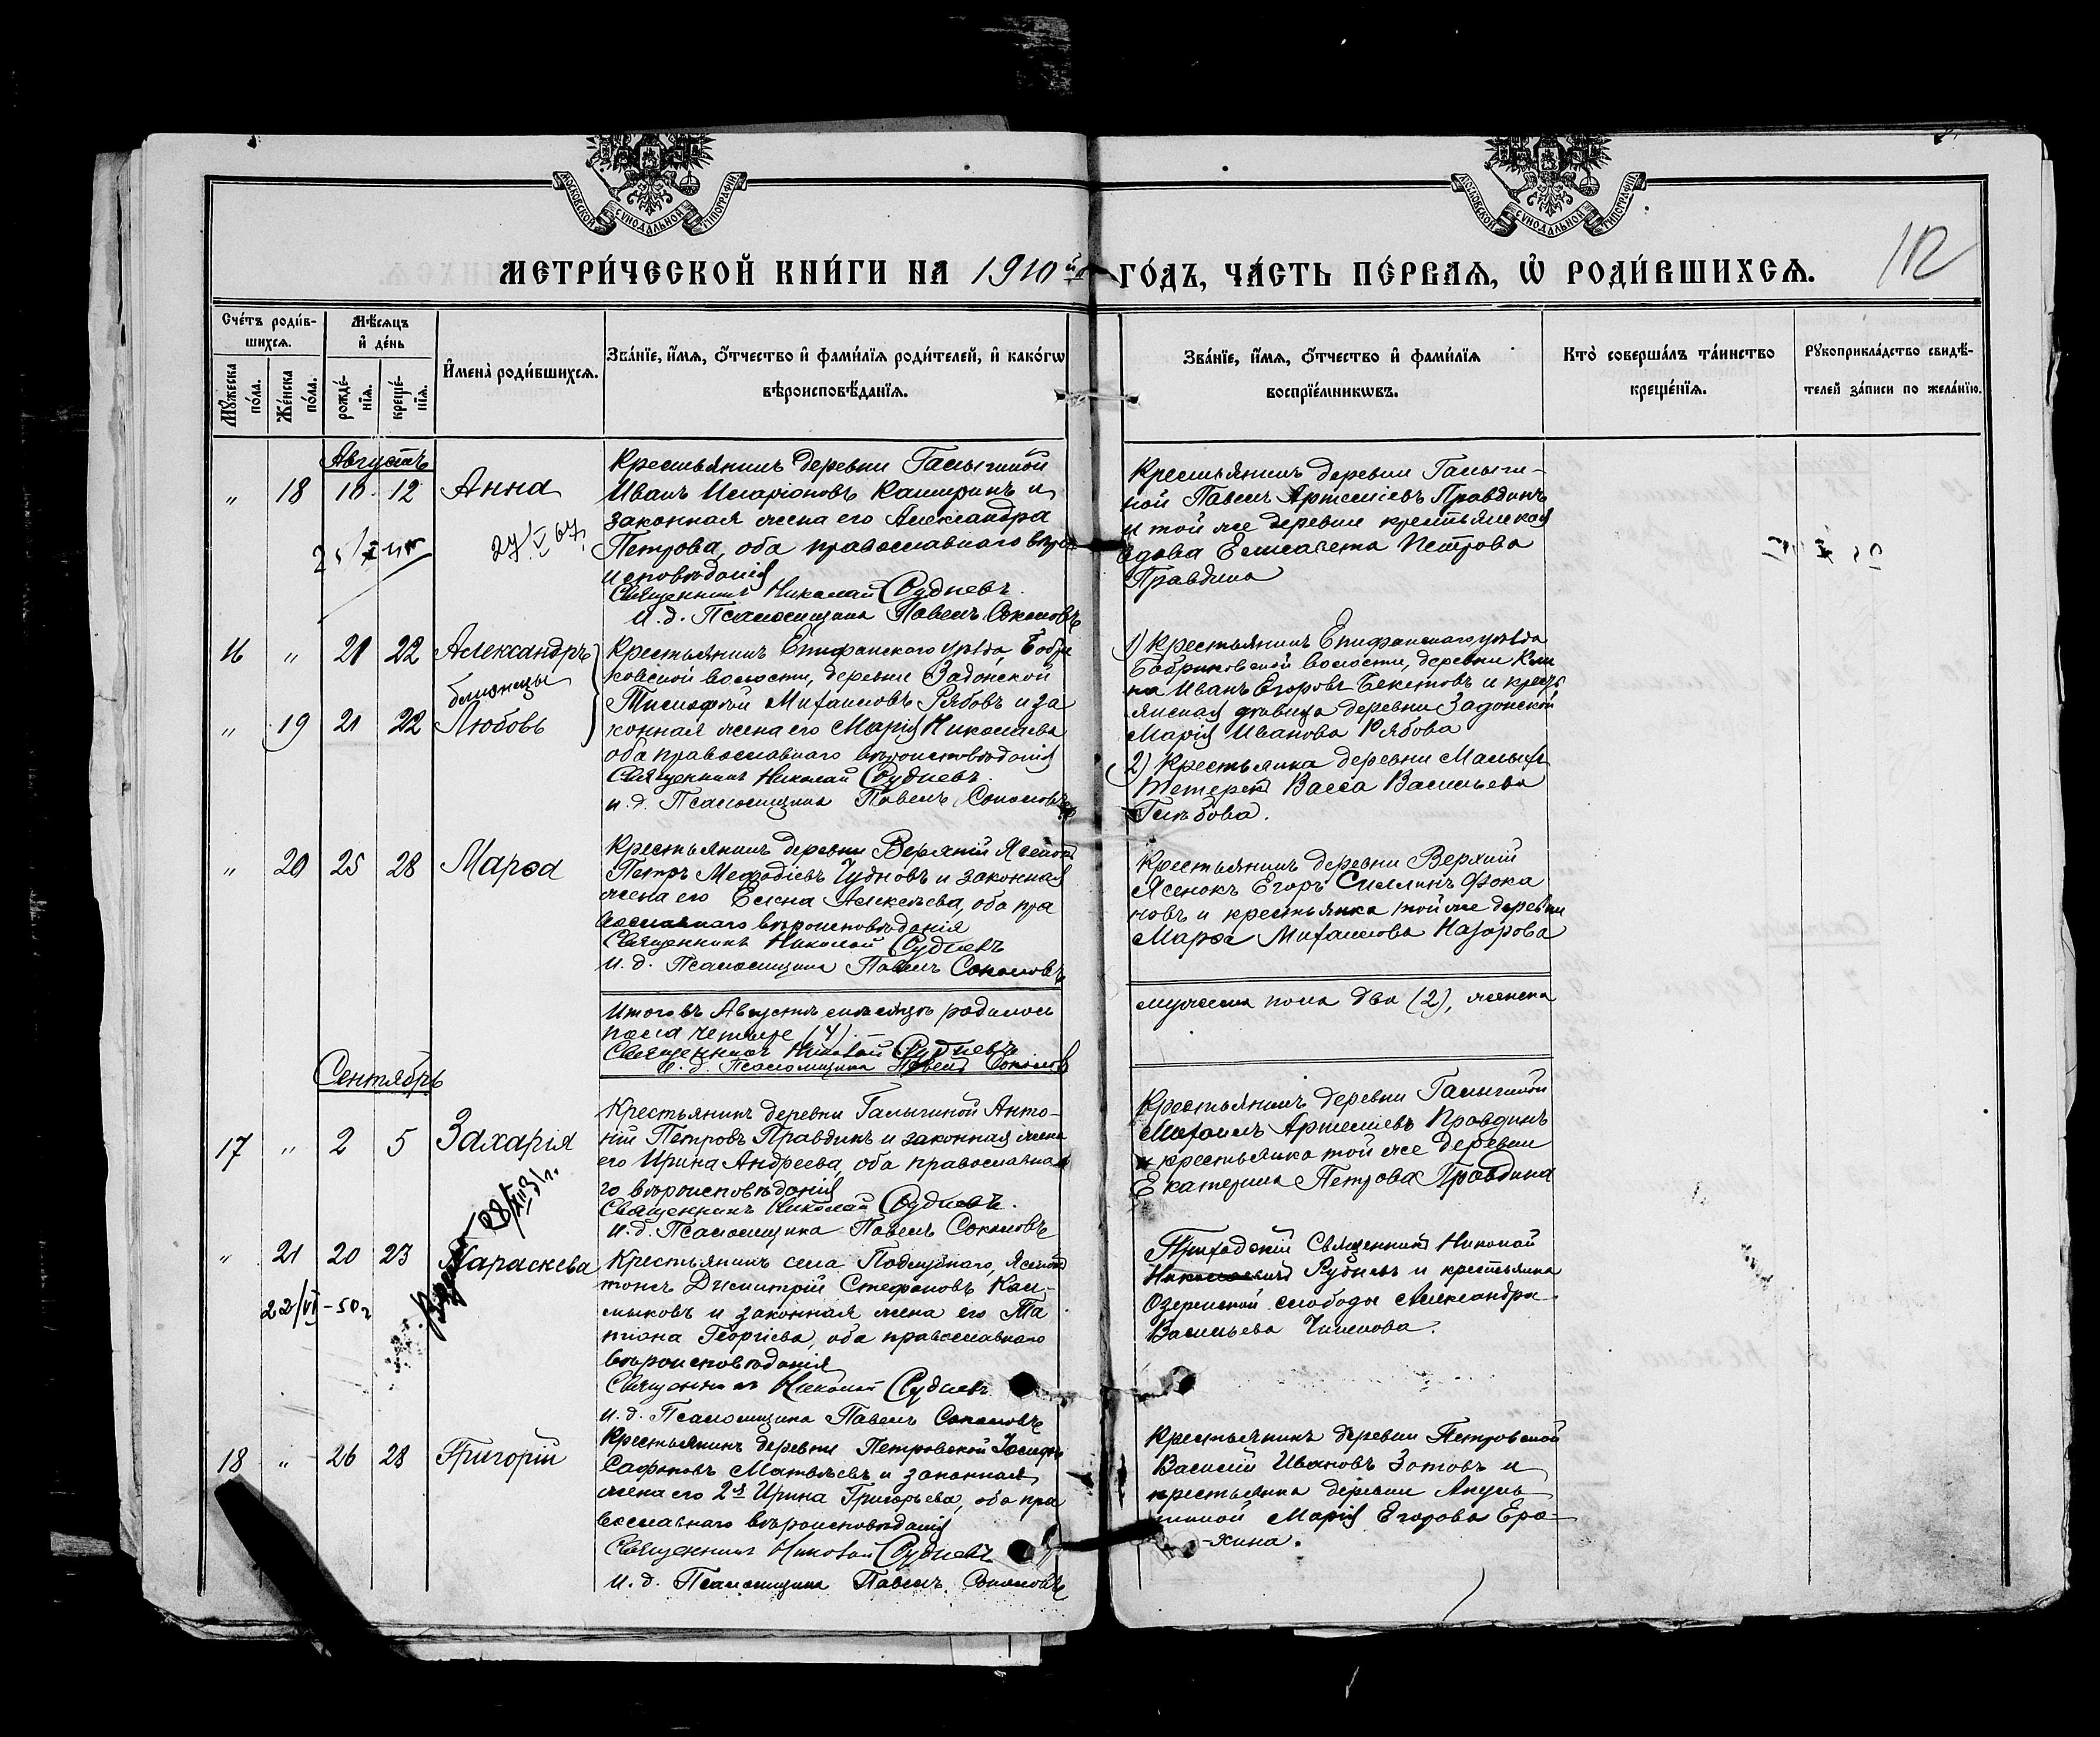 МОСКОВСКОЙ СѴНОДАЛЬНОЙ ТИПОГРАФІИ
МОСКОВСКОЙ СѴНОДАЛЬНОЙ ТИПОГРАФІИ
МЕТРИ́ЧЕСКОЙ КНИ́ГИ НА 1910й ГО́ДЪ, ЧА́СТЬ ПЕ́РВАЯ, Ѡ РОДИ́ВШИХСЯ.
112
Сче́тъ роди́в-
шихся.
Мѣ́сяцъ
и҆ де́нь
Мꙋ́жеска
по́ла.
Же́нска
по́ла.
рожде́-
нїя.
креще́-
нїя.
И҆мена̀ роди́вшихся.
Зва́нїе, и҆́мя, ѻ҆́тчество и҆ фами́лїя роди́телей, и҆ како́гѡ
вѣроисповѣ́данїя.
Зва́нїе, и҆́мя, ѻ҆́тчество и҆ фами́лїя
воспрїе́мникѡвъ.
Кто̀ соверша́лъ та́инство
креще́нїя.
Рꙋкоприкла́дство свидѣ́-
телей за́писи по жела́нїю.
Августъ
" 18 10 12 Анна
27/V 67г.
Крестьянинъ деревни Галыгиной
Иванъ Иларіоновъ Каширинъ и
законная жена его Александра
Петрова, оба православнаго вѣро
исповѣданія
Священникъ Николай Рудневъ.
И. д. Псаломщика Павелъ Соколовъ
Крестьянинъ деревни Галыги-
ной Павелъ Артеміевъ Правдинъ
и той же деревни крестьянская
вдова Елисавета Петрова
Правдина
16 " 21 22 Александръ
близнецы
" 19 21 22 Любовь
Крестьянинъ Епифанскаго уѣзда, Бобри
ковской волости, деревни Задонской
Тимофей Михаиловъ Рябовъ и за
конная жена его Марія Николаева
оба православнаго вѣроисповѣданія
Священникъ Николай Рудневъ.
и. д. Псаломщика Павелъ Соколовъ
1) Крестьянинъ Епифанскаго уѣзда
Бобриковской волости, деревни
Иванъ Егоровъ Бекетовъ и кресть
янская дѣвица деревни Задонской
Марія Иванова Рябова
2) Крестьянка деревни Малыхъ
Васса Васильева
Глѣбова.
" 20 25 28 Марѳа
Крестьянинъ деревни Верхній Ясенокъ
Петръ Меѳодіевъ Чудновъ и законная
жена его Елена Алексѣева, оба пра
вославнаго вѣроисповѣданія
Священникъ Николай Рудневъ
И. д. Псаломщика Павелъ Соколовъ
Крестьянинъ деревни Верхній
Ясенокъ Егоръ Фока
новъ и крестьянка той же деревни
Марѳа Михаилова Назарова
Итого въ Августѣ мѣсяцѣ родилось
пола четыре (4).
Священникъ Николай Рудневъ
и. д. Псаломщика Павелъ Соколовъ
мужеска пола два (2), женска
Сентябрь
17 " 2 5 Захарія
Крестьянинъ деревни Галыгиной Анто-
ній Петровъ Правдинъ и законная жена
его Ирина Андреева, оба православна
го вѣроисповѣданія
Священникъ Николай Рудневъ.
И. д. Псаломщика Павелъ Соколовъ
Крестьянинъ деревни Галыгиной
Михаилъ Артеміевъ Правдинъ
и крестьянка той же деревни
Екатерина Петрова Правдина
" 21 20 23 Параскева
22/VI - 50г
Крестьянинъ села Ясенокъ
тожъ Димитрій Стефановъ Кал-
мыковъ и законная жена его Та
тіана Георгіева, оба православнаго
вѣроисповѣданія
Священникъ Николай Рудневъ
И. д. Псаломщика Павелъ Соколовъ
Приходскій Священникъ Николай
Рудневъ и крестьянка
Озеренской слободы Александра
Васильева Чиликова.
18 " 26 28 Григорій
Крестьянинъ деревни Петровской Іосифъ
Сафоновъ Матвѣевъ и законная
жена его 2я Ирина Григорьева, оба пра
вославнаго вѣроисповѣданія
Священникъ Николай Рудневъ
И. д. Псаломщика Павелъ Соколовъ
Крестьянинъ деревни Петровской
Василій Ивановъ Зотовъ и
крестьянка деревни Акуль
шиной Марія Егорова Ера-
-хина.